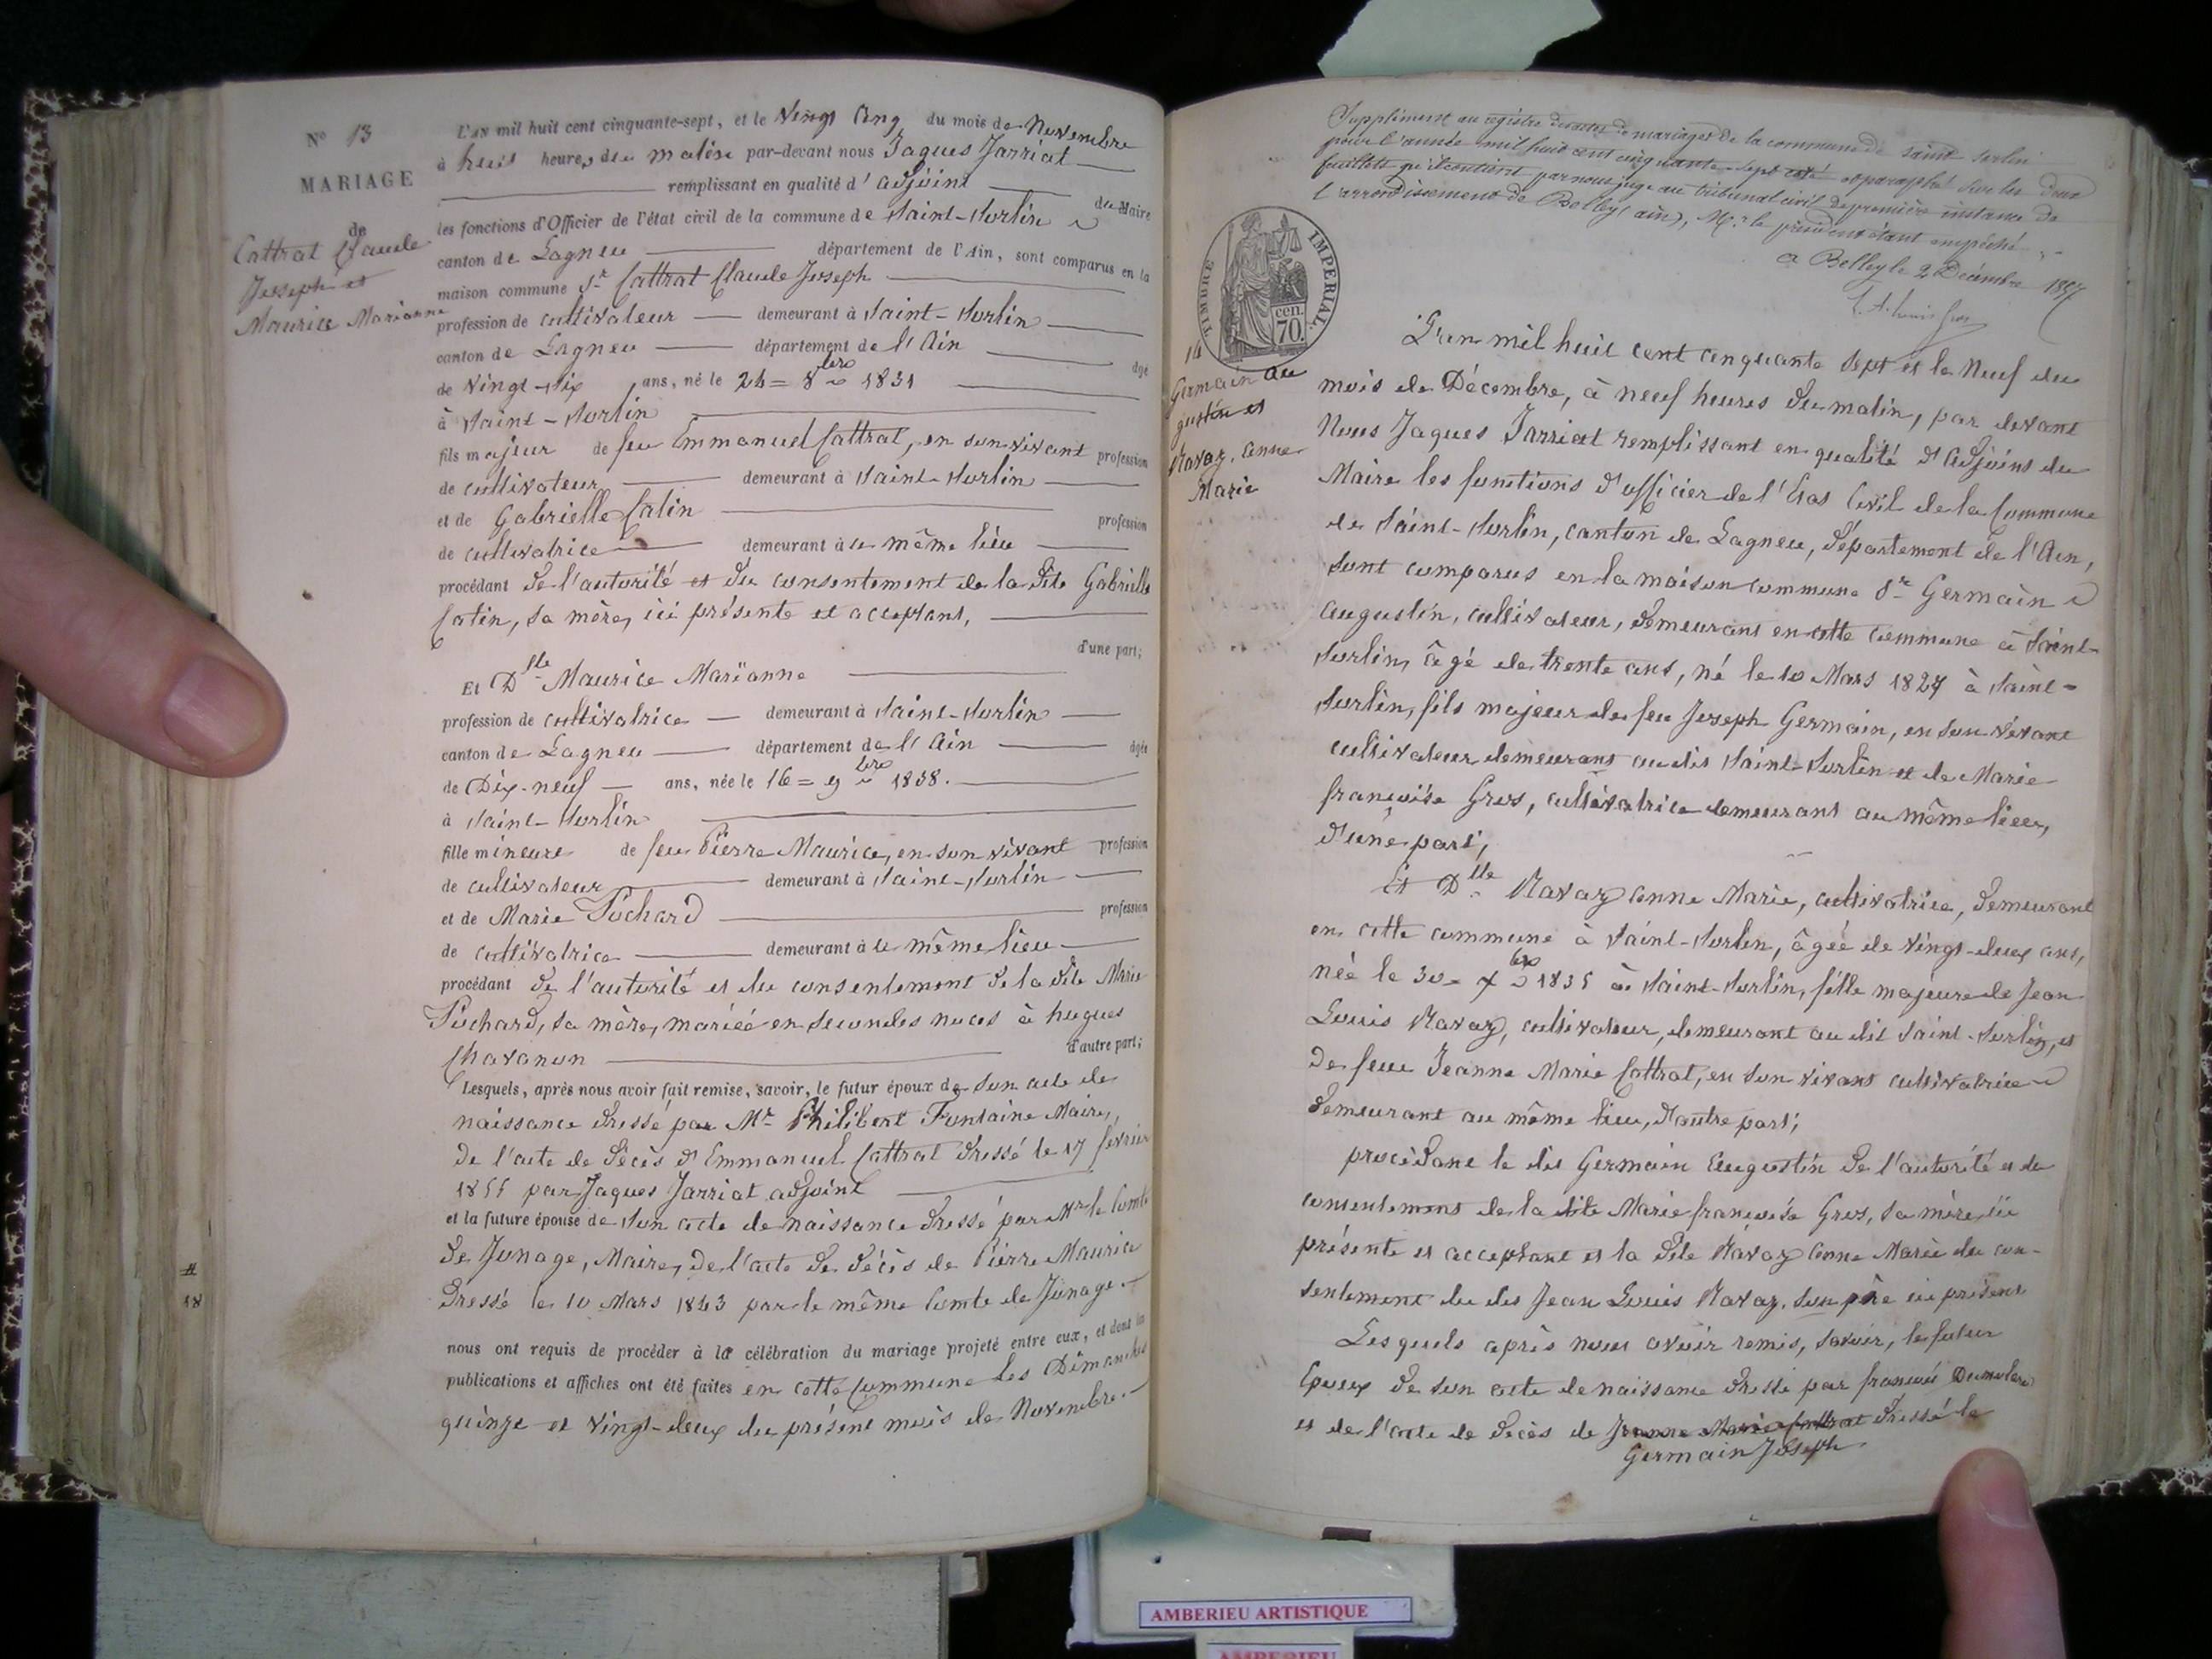 N° 13
MARIAGE
de
Cattrat Claude
Joseph et
Maurice Marianne
L'AN mil huit cent cinquante-sept, et le Vingt Cinq du mois de Novembre
à huit heures du matin par-devant nous Jaques Jarriat
remplissant en qualité d'adjoint du Maire
les fonctions d'Officier de l'état civil de la commune de Saint-Sorlin
canton de Lagneu département de l'Ain, sont comparus en la
maison commune Sr Cattrat Claude Joseph
profession de cultivateur demeurant à Saint-Sorlin
canton de Lagneu département de l'Ain âgé
de vingt-six ans, né le 24 = 8bre 1831
à Saint-Sorlin
fils majeur de feu Emmanuel Cattrat, en son vivant profession
de cultivateur demeurant à Saint-Sorlin
et de Gabrielle Catin profession
de cultivatrice demeurant à le même lieu
procédant de l'autorité et du consentement de la dite Gabrielle
Catin, sa mère, ici présente et acceptant,
d'une part;
Et Dlle Maurice Marianne
profession de cultivatrice demeurant à Saint-Sorlin
canton de Lagneu département de l'Ain âgée
de Dix-neuf ans, née le 16 = 9bre 1838.
à Saint-Sorlin
fille mineure de feu Pierre Maurice, en son vivant profession
de cultivateur demeurant à Saint-Sorlin
et de Marie Pochard profession
de cultivatrice demeurant à le même lieu
procédant de l'autorité et du consentement de la dite Marie
Pochard, sa mère, mariée en secondes noces à hugues
Chavanon d'autre part;
Lesquels, après nous avoir fait remise, savoir, le futur époux de son acte de
naissance dressé par Mr Philibert Fontaine Maire,
de l'acte de décès d'Emmanuel Cattrat dressé le 17 février
1855 par Jaques Jarriat adjoint
et la future épouse de son acte de naissance dressé par Mr le Comte
de Jonage, Maire, de l'acte de décès de Pierre Maurice
dressé le 10 Mars 1843 par le même Comte de Jonage.
nous ont requis de procéder à la célébration du mariage projeté entre eux, et dont les
publications et affiches ont été faites en cette Commune les Dimanches
quinze et vingt-deux du présent mois de Novembre.
18
Supplément au registre des actes de mariages de la commune de Saint Sorlin
pour l'année mil huit cent cinquante-sept coté et paraphé sur les deux
feuillets qu'il contient par nous juge au tribunal civil de première instance de
l'arrondissement de Belley (ain), Mr le président étant empêché
a Belley le 2 Décembre 1857
TIMBRE IMPERIAL.
cen. 70.
14
Germain Au
gustin et
Ravaz, anne
Marie
L'an mil huit cent cinquante sept et le Neuf du
mois de Décembre, à neuf heures du matin, par devant
Nous Jaques Jarriat remplissant en qualité d'adjoint du
Maire les fonctions d'officier de l'Etat Civil de la Commune
de Saint-Sorlin, canton de Lagneu, département de l'Ain,
sont comparus en la maison commune Sr Germain
augustin, cultivateur, demeurant en cette commune à Saint-
Sorlin, âgé de trente ans, né le 10 Mars 1827 à Saint-
Sorlin, fils majeur de feu Joseph Germain, en son vivant
cultivateur demeurant au dit Saint-Sorlin et de Marie
françoise Gros, cultivatrice demeurant au même lieu,
d'une part;
Et Dlle Ravaz anne Marie, cultivatrice, demeurant
en cette commune à Saint-Sorlin, âgée de vingt-deux ans,
née le 30 = 7bre 1835 à Saint-Sorlin, fille majeure de Jean
Louis Ravaz, cultivateur, demeurant au dit Saint-Sorlin, et
de feue Jeanne Marie Cattrat, en son vivant cultivatrice
demeurant au même lieu, d'autre part;
procédant le dit Germain Augustin de l'autorité et du
consentement de la dite Marie françoise Gros, sa mère, ici
présente et acceptant et la dite Ravaz Anne Marie du con-
sentement du dit Jean Louis Ravaz, son père ici présent
Lesquels après nous avoir remis, savoir, le futur
Epoux de son acte de naissance dressé par françois
et de l'acte de décès de Jeanne Marie Cattrat dressé le
Germain Joseph
AMBERIEU ARTISTIQUE
AMBERIEU